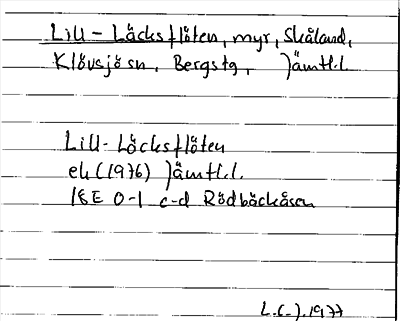 Lill-Läcksflöten, myr, Skåland,
Klövsjö sn, Bergs tg, Jämtl. l.
Lill-Löcksflöten
ek (1976) Jämtl. l.
18E 0-1 c-d Rödbäckåsen
L.C.J. 1977